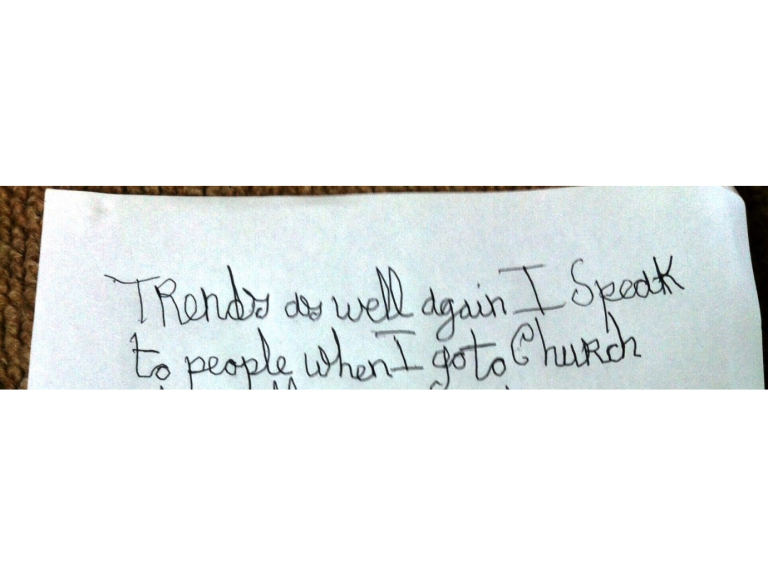 TRends as well again I Speak
to people when I go to Church